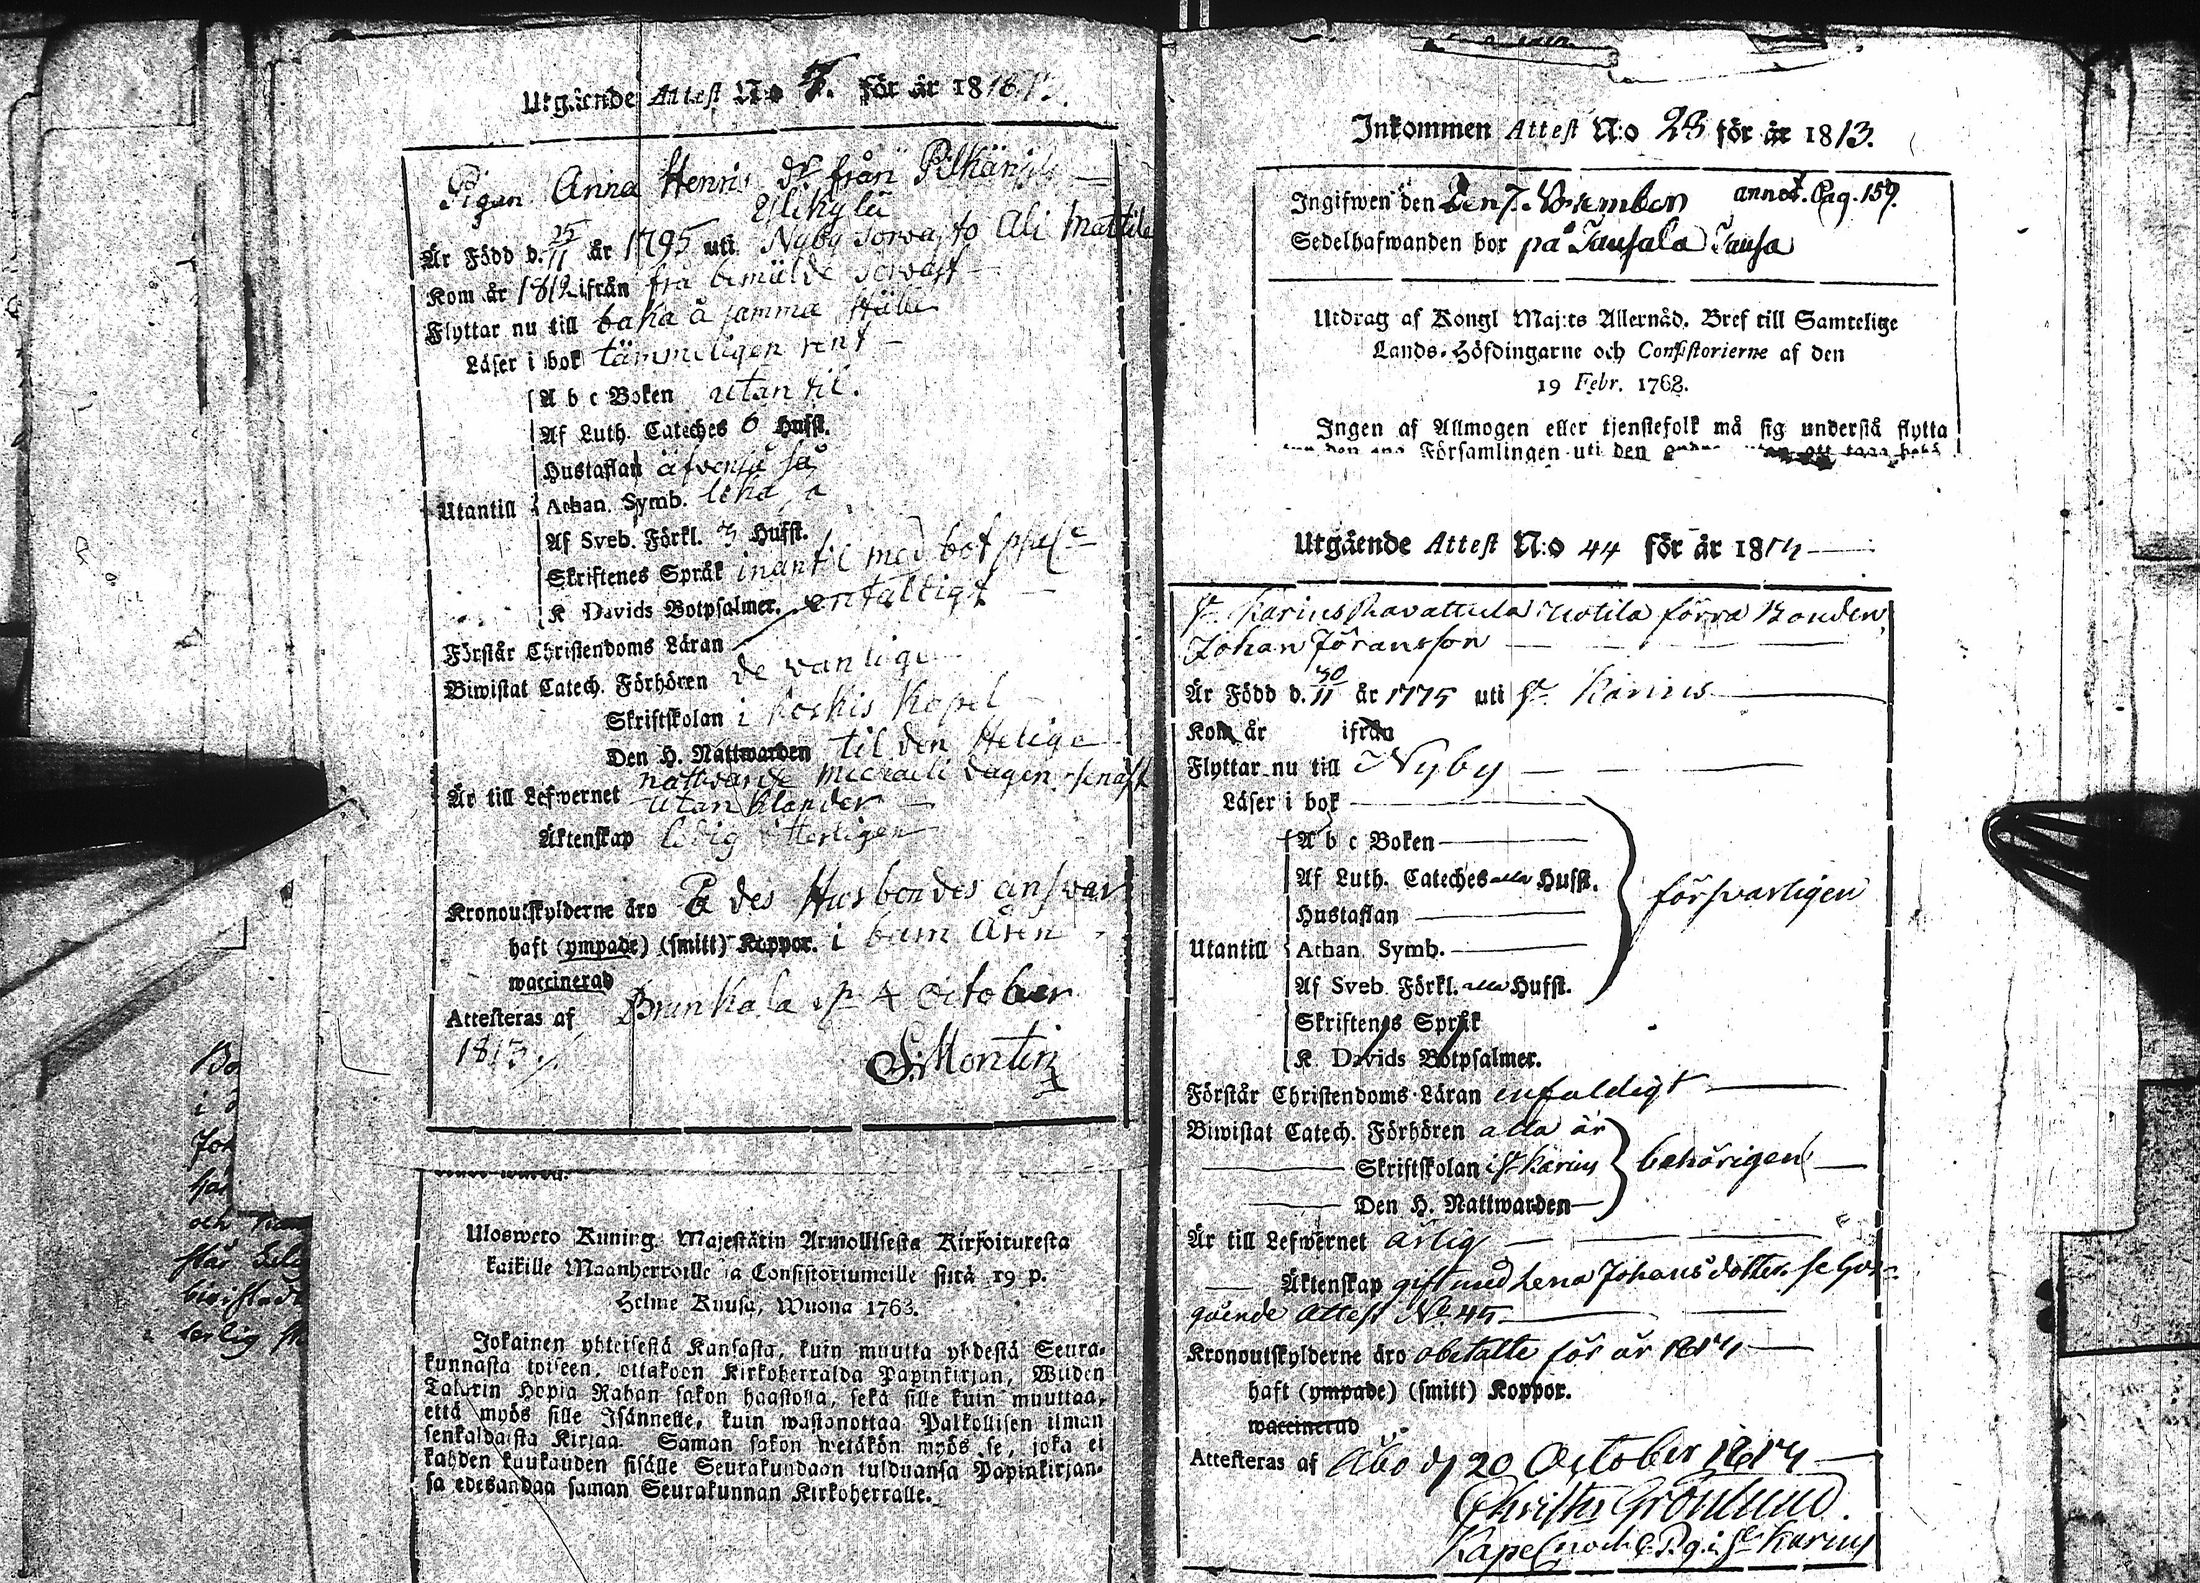 Utgående Attest N:o 7. för år 1813.
Pigan Anna Henrics dr från Pilkänsilt
Ylikylä
Är Född d. 25/11 år 1795 uti Nyby Torvasto Ali Mattila
Kom år 1812 ifrån frå bemälde
Flyttar nu till baka å samma Hälle
Läser i bok tämmeligen rent
A b c Boken utan til.
Af Luth. Cateches 6 Hufst.
Hustaflan äfvenså så
Utantill Athan. Symb. lika så
Af Sveb. Förkl. 3 Hufst.
Skriftenes Språk inantil med bot
K Davids Botpsalmer.
Förstår Christendoms Läran enfaldigt
Biwistat Catech. Förhören de vanlige
Skriftskolan i Koskis Kapel
Den H. Nattwarden til den Helige
nattvarde Michaeli dagen senast
Är till Lefwernet utan klander
Äktenskap ledig Herligen
Kronoutskylderne äro På des Husbondes answar
haft (ympade) (smitt) Koppor. i barn Åren
waccinerad
Attesteras af Brunkala 4 October
1813.
S: Montin
Uloswero Kuning. Majestätin Armollisesta Kirjoituresta
kaikille Maanherroille ja Consistoriumeille siitä 19 p.
Helme Kuusa, Wuona 1763.
Jokainen yhteisestä Kansasta, kuin muutta yhdestä Seura-
kunnasta toiseen, ottakoon Kirkoherralda Papinkirjan, Wiiden
Talarin Hopia Rahan sakon haastolla, sekä sille kuin muuttaa,
että myös sille Isännelle, kuin wastanottaa Palkollisen ilman
senkaldaista Kirjaa. Saman sakon wetäkön myös se, joka ei
kahden kuukauden sisälle Seurakundaan tulduansa Papinkirjan-
sa edesandaa saman Seurakunnan Kirkoherralle.
Inkommen Attest N:o 28 för år 1813.
Ingifwen den Den 7. November annot. Pag. 159.
Sedelhafwanden bor på Tausala Tausa
Utdrag af Kongl Maj:ts Allernåd. Bref till Samtelige
Lands-Höfdingarne och Consistorierne af den
19 Febr. 1763.
Ingen af Allmogen eller tjenstefolk må sig understå flytta
den ena Församlingen uti den
Utgående Attest N:o 44 för år 1814
St. Karins Ravattula Notila förra Bonden
Johan Jöransson
Är Född d. 30/11 år 1775 uti St. Karins
Kom år ifrån
Flyttar nu till Nyby
Läser i bok
A b c Boken
Af Luth. Cateches alla Hufst.
Hustaflan försvarligen
Utantill Athan Symb.
Af Sveb Förkl. alla Hufst.
Skriftenes Språk
K Davids Botpsalmer.
Förstår Christendoms Läran enfaldigt
Biwistat Catech. Förhören alla år
Skriftskolan i St Karins behörigen
Den H. Nattwarden
Är till Lefwernet ärlig
Äktenskap gift med Lena Johans dotter. se
gående Attest No 45
Kronoutskylderne äro obetalte för år 1814
haft (ympade) (smitt) Koppor.
waccinerad
Attesteras af Åbo d 20 October 1814
Christer Grönlund.
Kapel i St Karins